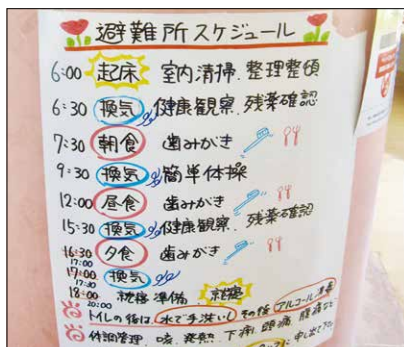 避難所スケジュール
6:00 起床 室内清掃、整理整頓
6:30 換気 健康観察、残薬確認
7:30 朝食 歯みがき
9:30 換気 簡単体操
12:00 昼食 歯みがき
15:30 換気 健康観察、残薬確認
16:30 夕食 歯みがき
17:00
17:00 換気
17:30
18:00 就寝準備、就寝
20:00
トイレの後は、水で手洗いし その後 アルコール消毒
体調管理、咳、発熱、下痢、頭痛、腹痛など
に申し出て下